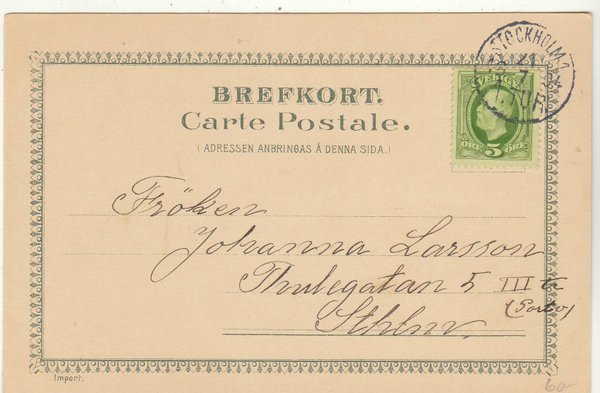 STOCKHOLM 1
21
7
SVERIGE
ÖRE 5 ÖRE
BREFKORT.
Carte Postale.
(ADRESSEN ANBRINGAS Å DENNA SIDA.)
Fröken
Johanna Larsson
Thulegatan 5 III tr
Sthlm.
Import.
60